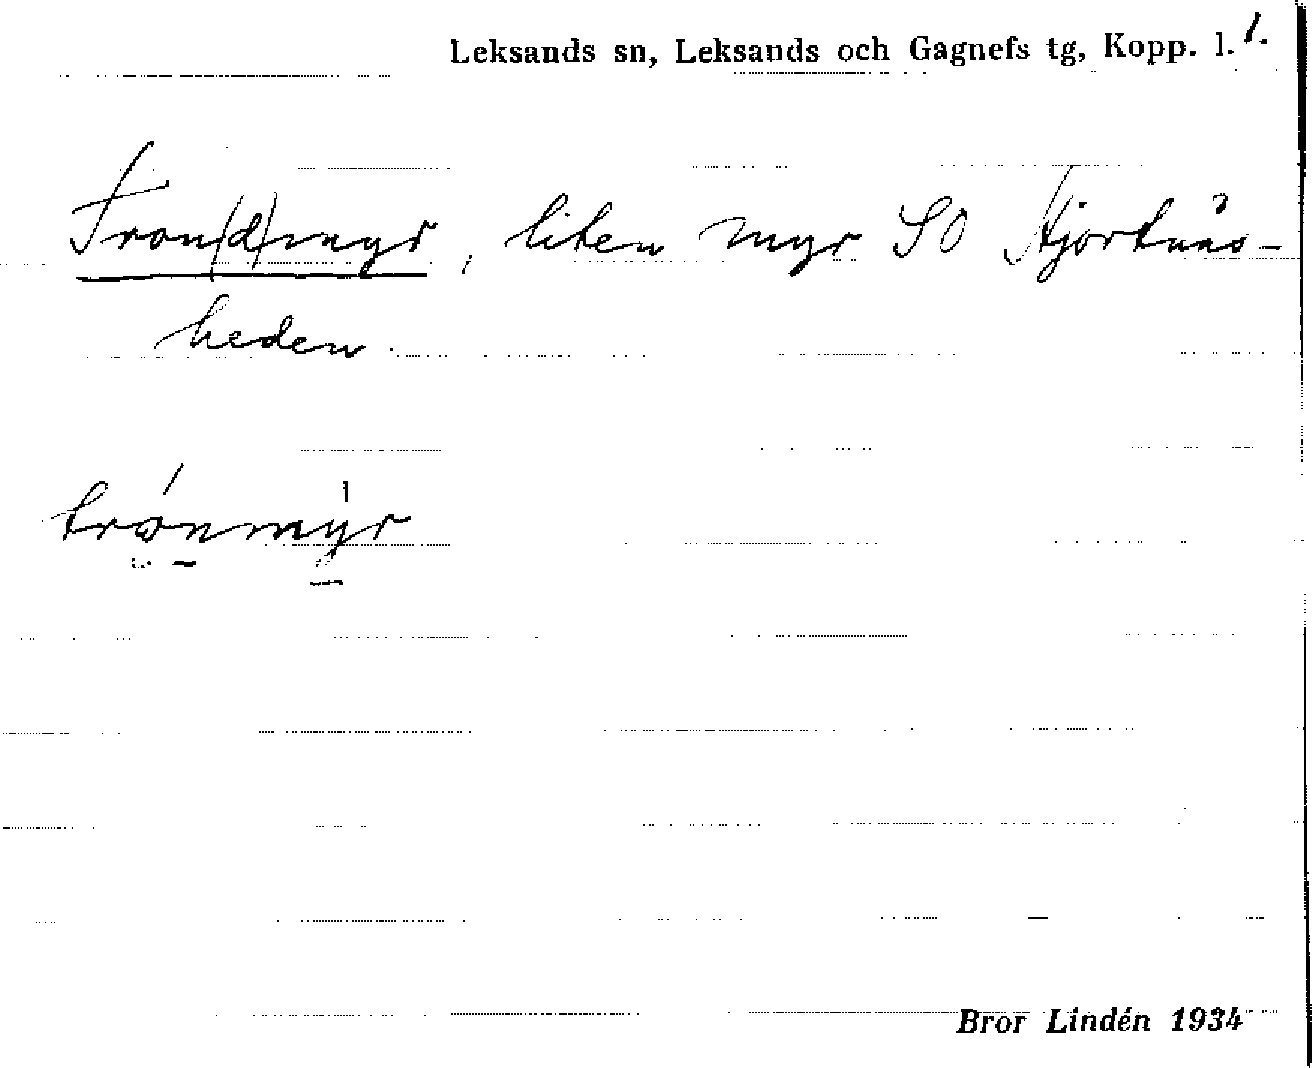 Leksands sn, Leksands och Gagnefs tg, Kopp. l. 1.
Tron(d)myr, liten myr SO Hjortnäs-
heden.
trònmỳr
Bror Lindén 1934